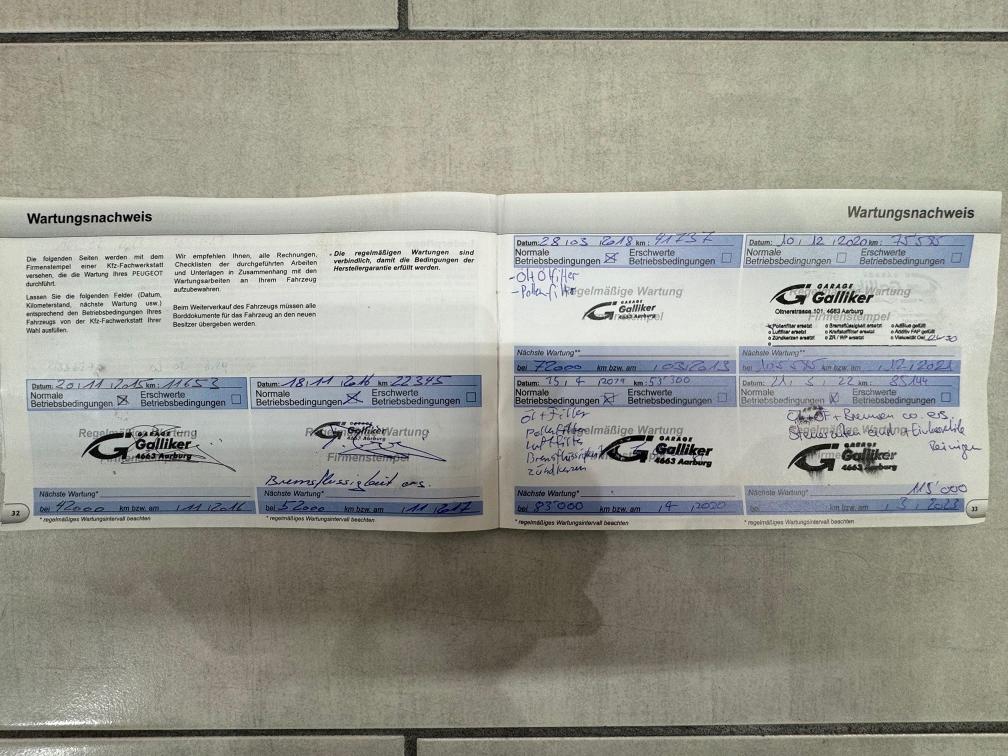 Wartungsnachweis
Die folgenden Seiten werden mit dem
Firmenstempel einer Kfz-Fachwerkstatt
versehen, die die Wartung Ihres PEUGEOT
durchführt.
Lassen Sie die folgenden Felder (Datum,
Kilometerstand, nächste Wartung usw.)
entsprechend den Bedingungen Ihres
Fahrzeugs von der Kfz-Fachwerkstatt Ihrer
Wahl ausfüllen.
Wir empfehlen Ihnen, alle Rechnungen,
Checklisten der durchgeführten Arbeiten
und Unterlagen in Zusammenhang mit den
Wartungsarbeiten an Ihrem Fahrzeug
aufzubewahren.
Beim Weiterverkauf des Fahrzeugs müssen alle
Borddokumente für das Fahrzeug an den neuen
Besitzer übergeben werden.
- Die regelmäßigen Wartungen sind
verbindlich, damit die Bedingungen der
Herstellergarantie erfüllt werden.
Datum: 20 11 2015 km: 11653
Normale Betriebsbedingungen
Erschwerte Betriebsbedingungen
Regelmäßige Wartung
Galliker
4663 Aarburg
Firmenstempel
Nächste Wartung*
bei 42000 km bzw. am 11 2016
Datum: 18 11 2016 km: 22345
Normale Betriebsbedingungen
Erschwerte Betriebsbedingungen
Regelmäßige Wartung
Galliker
4663 Aarburg
Firmenstempel
Bremsflüssigkeit ers.
Nächste Wartung*
bei 52000 km bzw. am 11 2017
* regelmäßiges Wartungsintervall beachten
* regelmäßiges Wartungsintervall beachten
32
Wartungsnachweis
Datum: 28 03 2018 km: 41737
Normale Betriebsbedingungen
Erschwerte Betriebsbedingungen
- Pollenfilter
Regelmäßige Wartung
GARAGE
Galliker
4663 Aarburg
Firmenstempel
Nächste Wartung**
bei 72000 km bzw. am 03 2019
Datum: 10 12 2020 km: 75535
Normale Betriebsbedingungen
Erschwerte Betriebsbedingungen
Regelmäßige Wartung
GARAGE
Galliker
Oltnerstrasse 101, 4663 Aarburg
Firmenstempel
Pollenfilter ersetzt
o Bremsflüssigkeit ersetzt
o AdBlue gefüllt
o Luftfilter ersetzt
o Kraftstofffilter ersetzt
o Additiv FAP gefüllt
o Zündkerzen ersetzt
o ZR / WP ersetzt
o Viskosität Oel 0W30
Nächste Wartung**
bei 105535 km bzw. am 12 2021
Datum: 15 4 2019 km: 53300
Normale Betriebsbedingungen
Erschwerte Betriebsbedingungen
Öl + Filter
Pollenfilter
Luftfilter
Bremsflüssigkeit
Zündkerzen
Regelmäßige Wartung
GARAGE
Galliker
4663 Aarburg
Nächste Wartung*
bei 83000 km bzw. am 4 2020
Datum: 21 3 22 km: 85144
Normale Betriebsbedingungen
Erschwerte Betriebsbedingungen
+ Bremsen
Reinigen
GARAGE
Galliker
4663 Aarburg
Nächste Wartung*
115'000
bei km bzw. am 3 2023
* regelmäßiges Wartungsintervall beachten
* regelmäßiges Wartungsintervall beachten
33